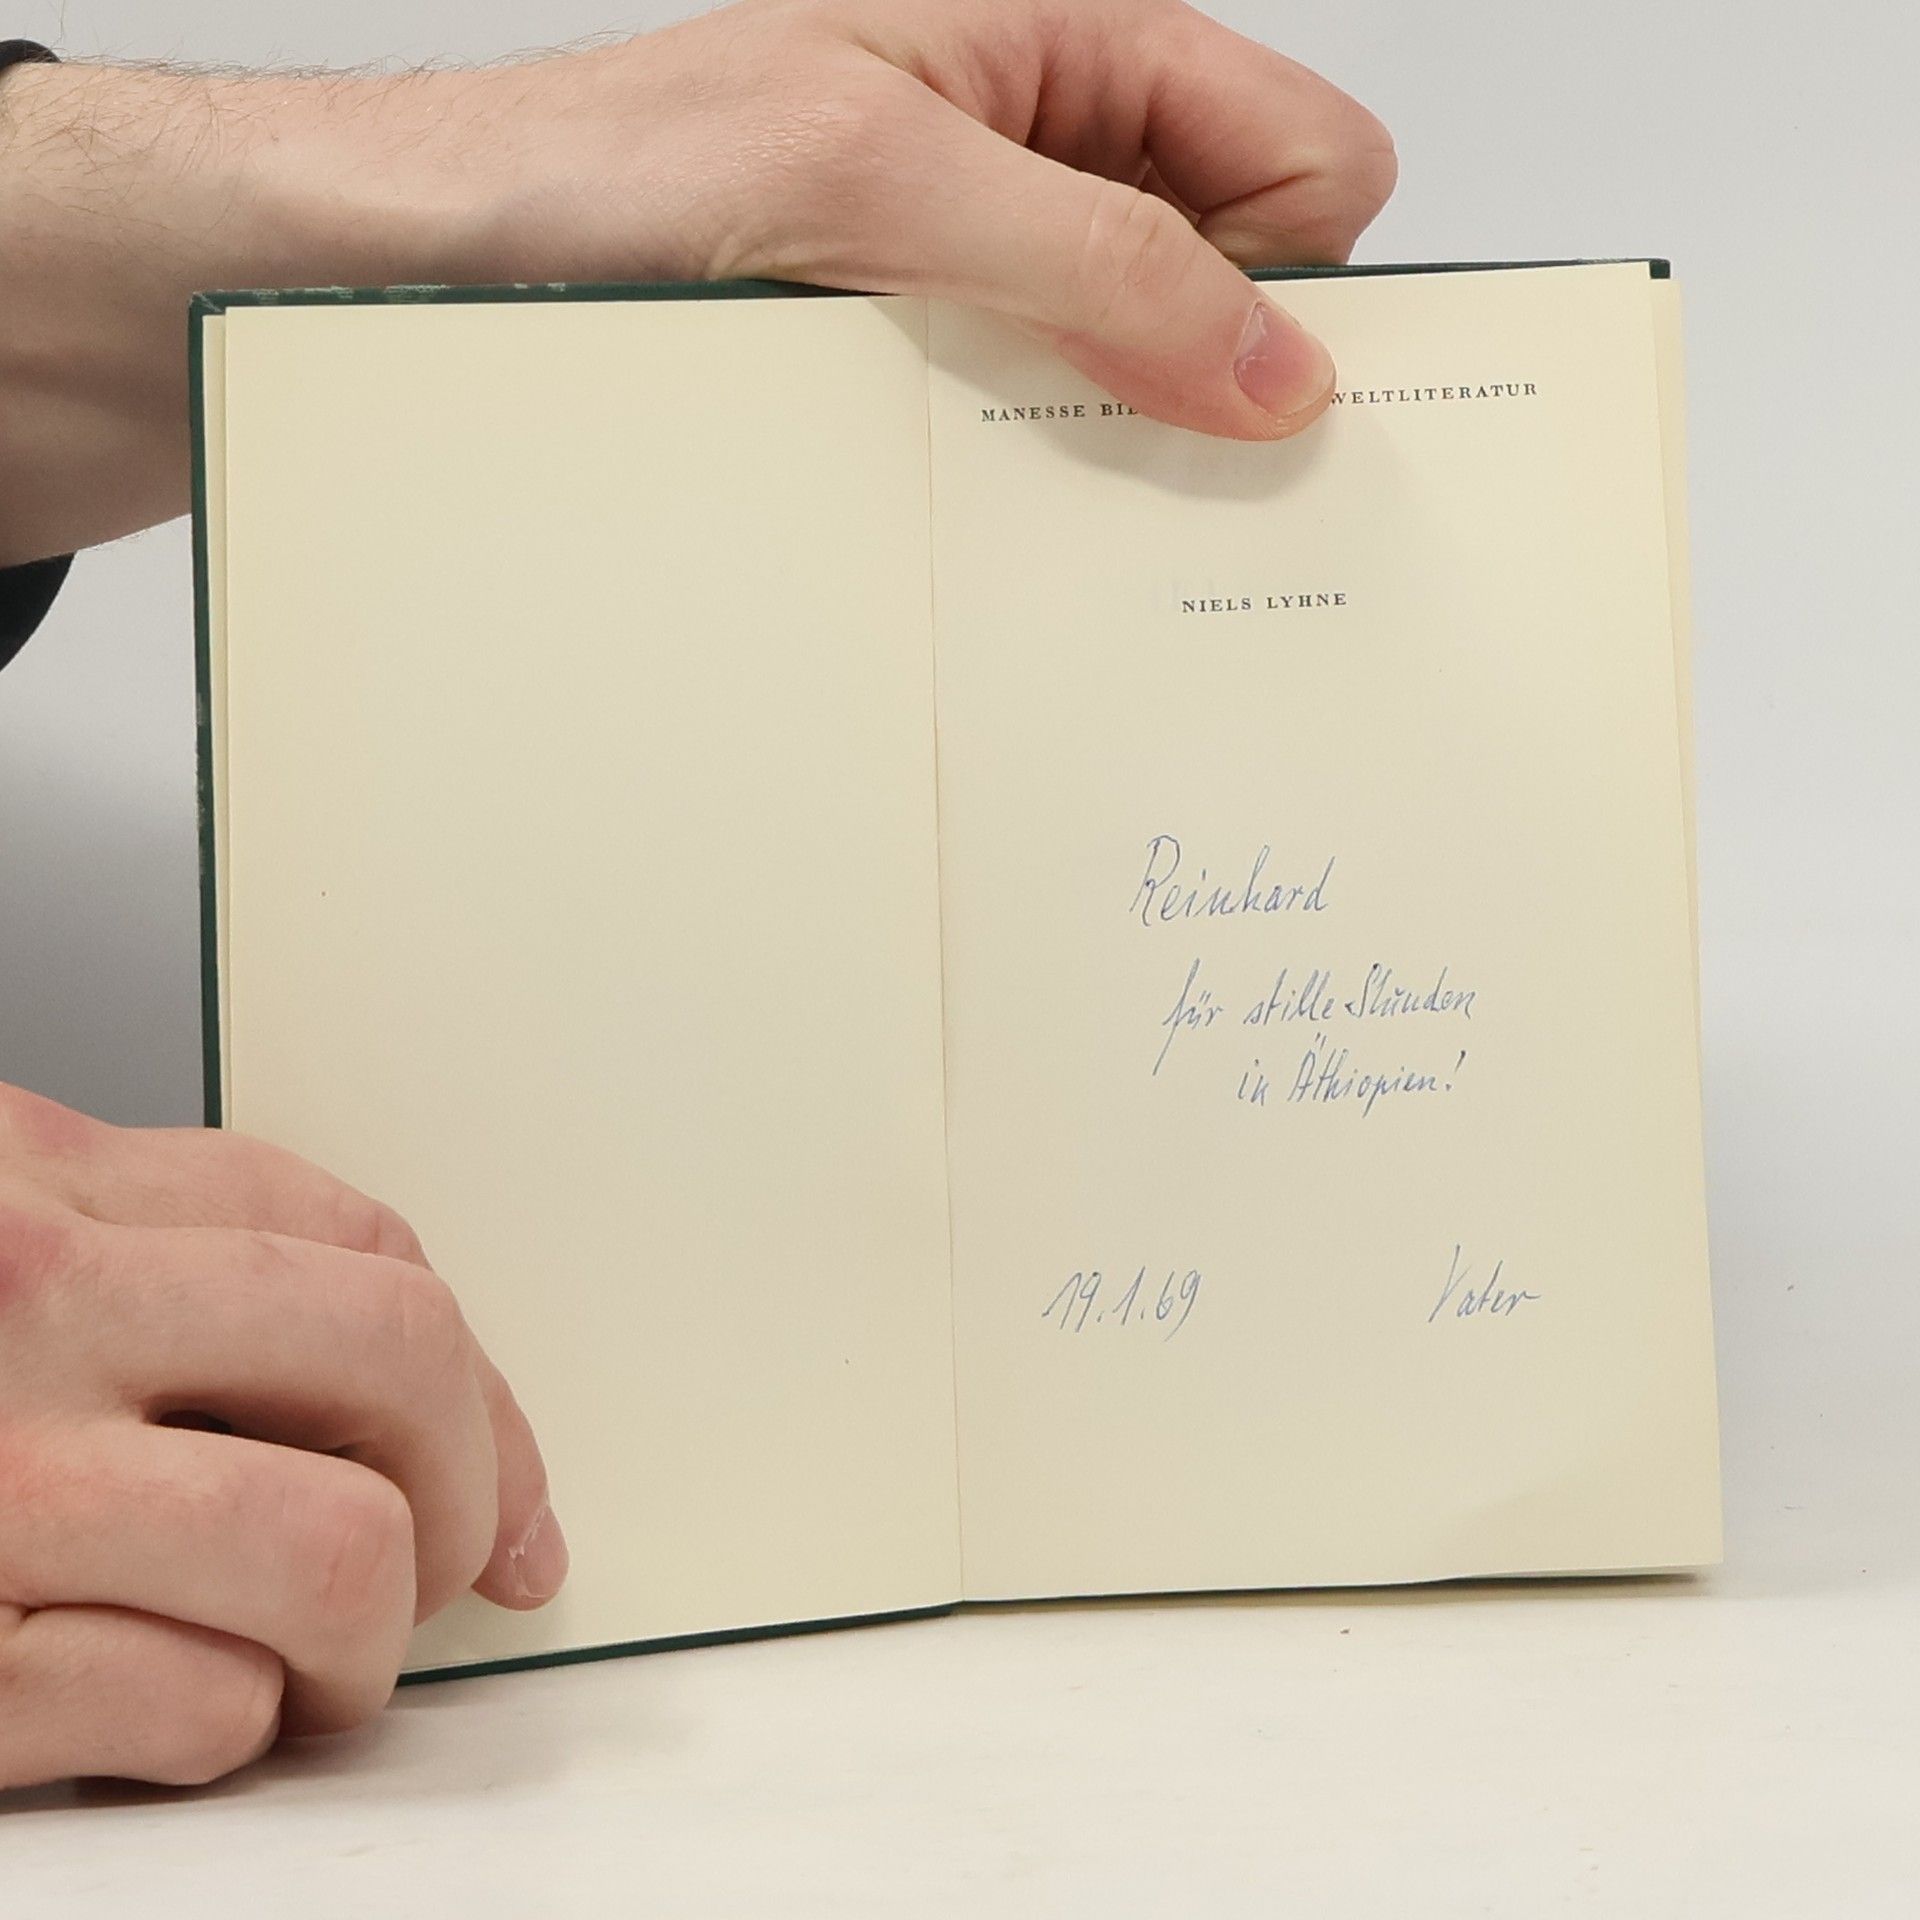 MANESSE BIL WELTLITERATUR
NIELS LYHNE
Reinhard
für stille Stunden
in Äthiopien!
19.1.69 Vater